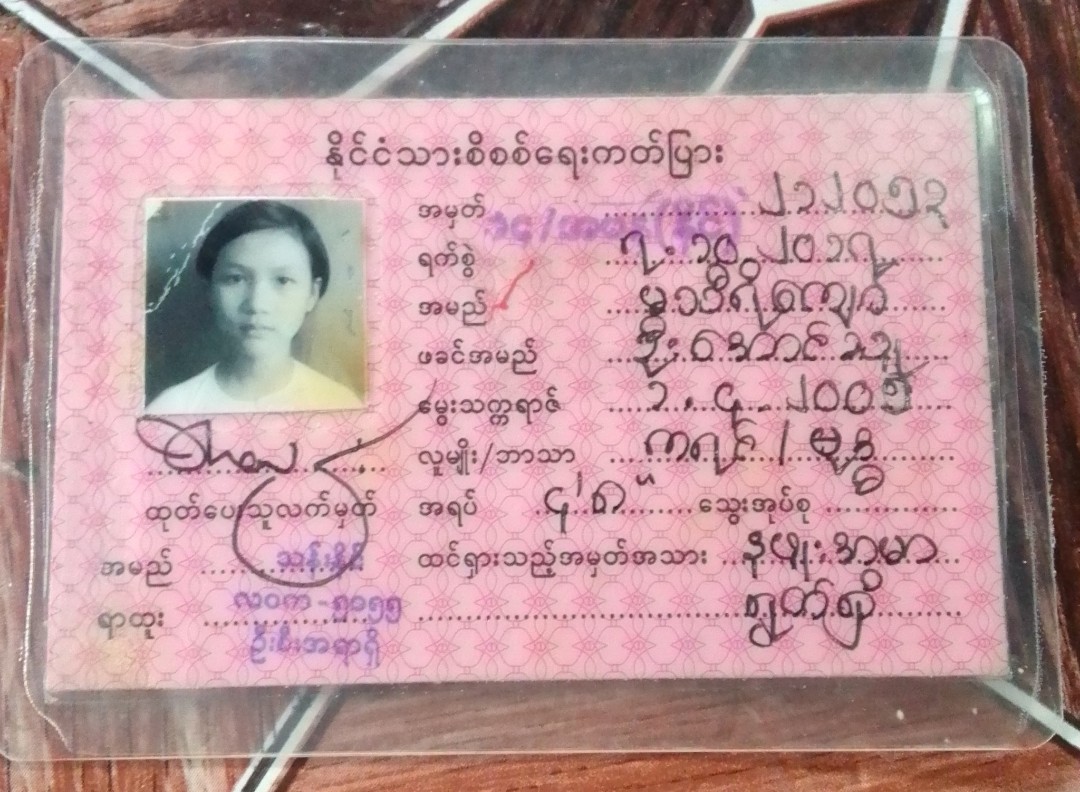 နိုင်ငံသားစိစစ်ရေးကတ်ပြား
အမှတ် ၁၄/အမန(နိုင်) ၂၁၂၀၅၃
ရက်စွဲ ၇.၁၀.၂၀၁၇
အမည် မသီရိကျော်
ဖခင်အမည် ဦးအောင်သူ
မွေးသက္ကရာဇ် ၁.၄.၂၀၀၅
လူမျိုး/ဘာသာ ကရင်/ဗုဒ္ဓ
အရပ် ၄'၈" သွေးအုပ်စု
ထုတ်ပေးသူလက်မှတ်
ထင်ရှားသည့်အမှတ်အသား နဖူးအာမာ
ရွတ်ရှိ
အမည် သန်းနိုင်
ရာထူး လဝက-၅၁၅၅
ဦးစီးအရာရှိ